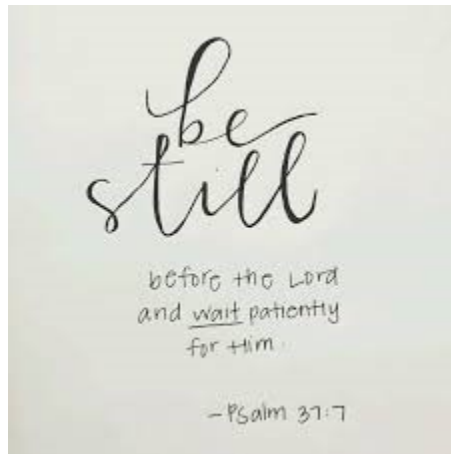 be
still
before the Lord
and wait patiently
for Him.
-Psalm 37:7